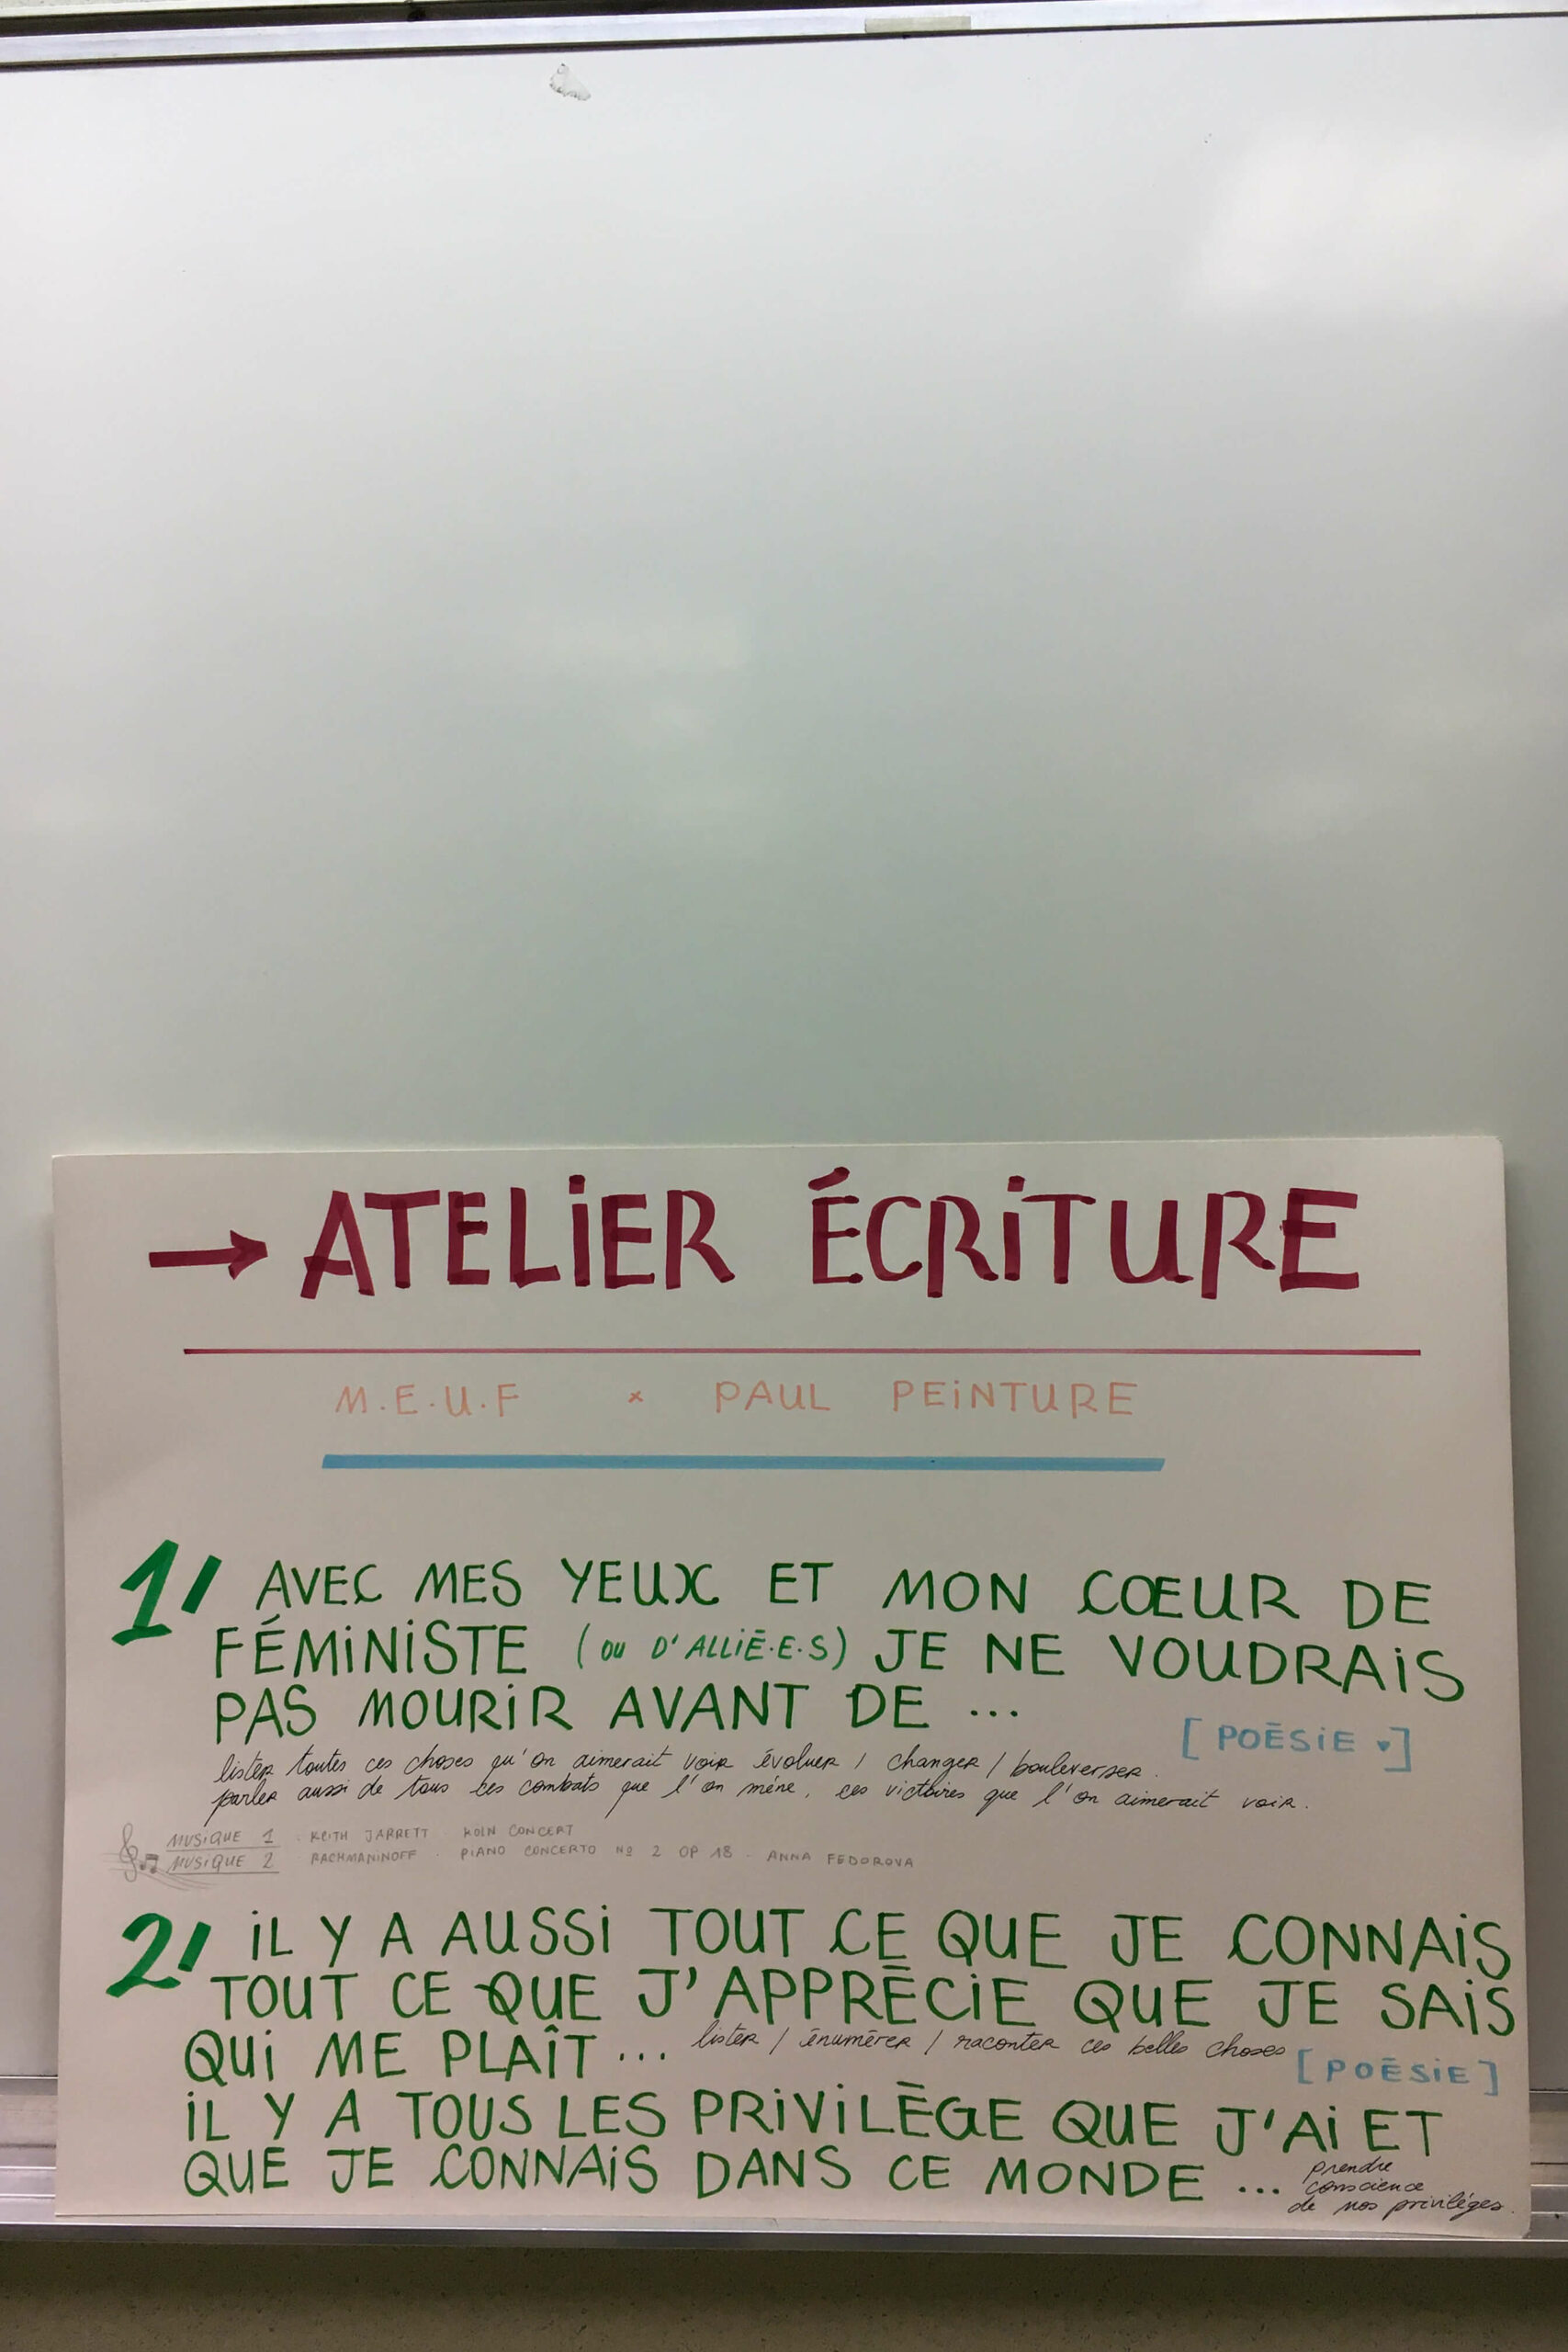 → ATELIER ÉCRITURE
M.E.U.F × PAUL PEINTURE
1/ AVEC MES YEUX ET MON CŒUR DE
FÉMINISTE (OU D'ALLIÉ·E·S) JE NE VOUDRAIS
PAS MOURIR AVANT DE ...
[POÉSIE ♥]
lister toutes ces choses qu'on aimerait voir évoluer / changer / bouleverser.
parler aussi de tous les combats que l'on mène, ces victoires que l'on aimerait voir.
MUSIQUE 1 . KEITH JARRETT . KOLN CONCERT
MUSIQUE 2 RACHMANINOFF . PIANO CONCERTO Nº 2 OP 18 . ANNA FEDOROVA
2/ IL Y A AUSSI TOUT CE QUE JE CONNAIS
TOUT CE QUE J'APPRÉCIE QUE JE SAIS
QUI ME PLAÎT ... lister / énumérer / raconter ces belles choses
[POÉSIE]
IL Y A TOUS LES PRIVILÈGE QUE J'AI ET
QUE JE CONNAIS DANS CE MONDE ...
prendre
conscience
de nos privilèges.